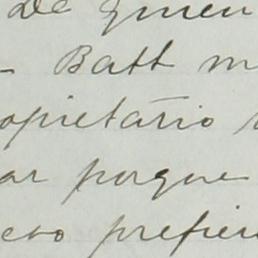 De quien
- Batt m
opietario
ar porque
eso prefier